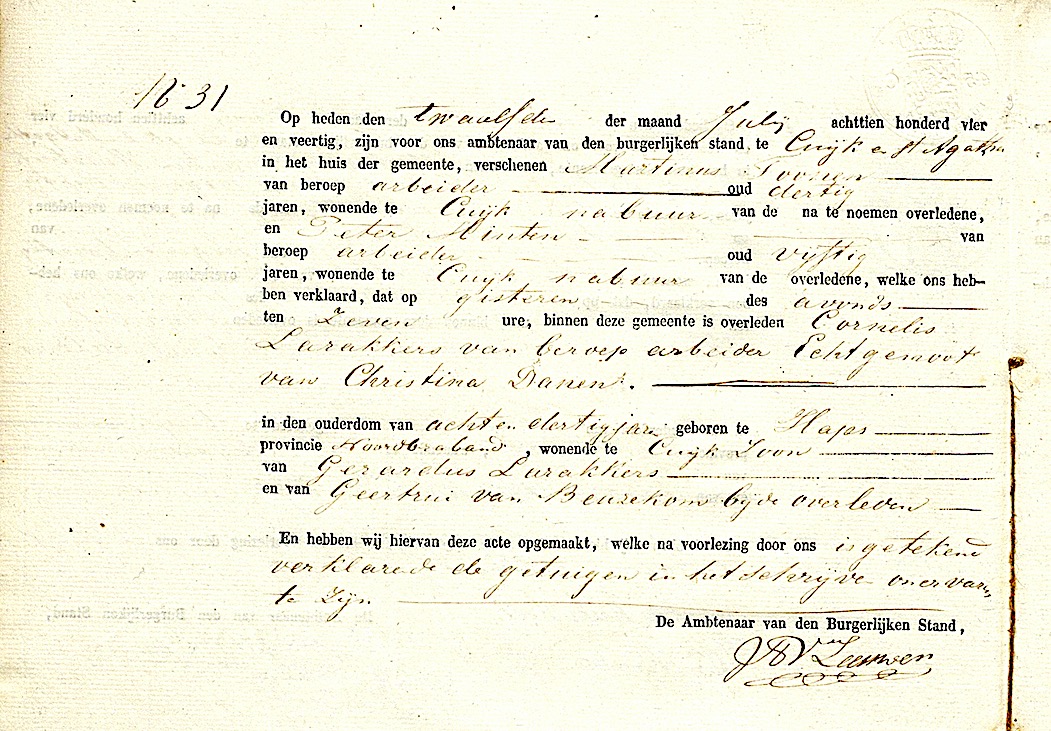 No 31
Op heden den twaalfden der maand Julij achttien honderd vier
en veertig, zijn voor ons ambtenaar van den burgerlijken stand te Cuijk en St Agatha
in het huis der gemeente, verschenen Martinus Toonen
van beroep arbeider oud dertig
jaren, wonende te Cuijk nabuur van de na te noemen overledene,
en Peter Minten van
beroep arbeider oud vijftig
jaren, wonende te Cuijk nabuur van de overledene, welke ons heb-
ben verklaard, dat op gisteren des avonds
ten Zeven ure, binnen deze gemeente is overleden Cornelis
Larakkers van beroep arbeider Echtgenoot
van Christina Danen.
in den ouderdom van acht en dertig jaren geboren te Haps
provincie Noordbraband, wonende te Cuijk Zoon
van Gerardus Larakkers
en van Geertrui van Beusekom byde overleden
En hebben wij hiervan deze acte opgemaakt, welke na voorlezing door ons is getekend
verklarende de getuigen in het schrijven onervaren
te Zijn
De Ambtenaar van den Burgerlijken Stand,